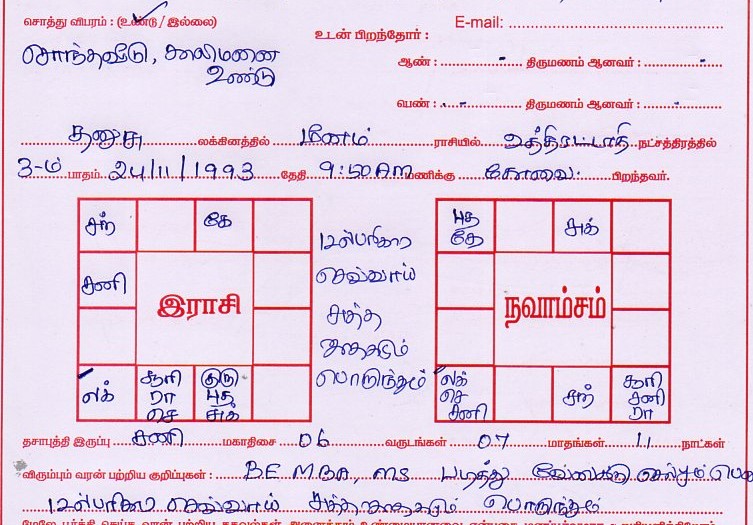 சொத்து விபரம் : (உண்டு / இல்லை) E-mail:
உடன் பிறந்தோர் :
சொந்தவீடு, காலிமனை
உண்டு
ஆண் : - திருமணம் ஆனவர் : -
பெண் : - திருமணம் ஆனவர் : -
தனுசு லக்கினத்தில் மீனம் ராசியில் உத்திரட்டாதி நட்சத்திரத்தில்
3-ம் பாதம் 24/11/1993 தேதி 9:50 AM மணிக்கு கோவை பிறந்தவர்.
சந் கே
சனி
இராசி
லக் சூரி ரா செ குரு புத சுக்
பரிகார
செவ்வாய்
சுத்த
ஜாதகமும்
பொருந்தும்
புத கே சுக்
நவாம்சம்
லக் செ சனி சந் சூரி சனி ரா
தசாபுத்தி இருப்பு சனி மகாதிசை 06 வருடங்கள் 07 மாதங்கள் 11 நாட்கள்
விரும்பும் வரன் பற்றிய குறிப்புகள் : BE MBA, MS படித்து வேலைக்கு செல்லும்
பரிகார செவ்வாய் சுத்த ஜாதகமும் பொருந்தும்